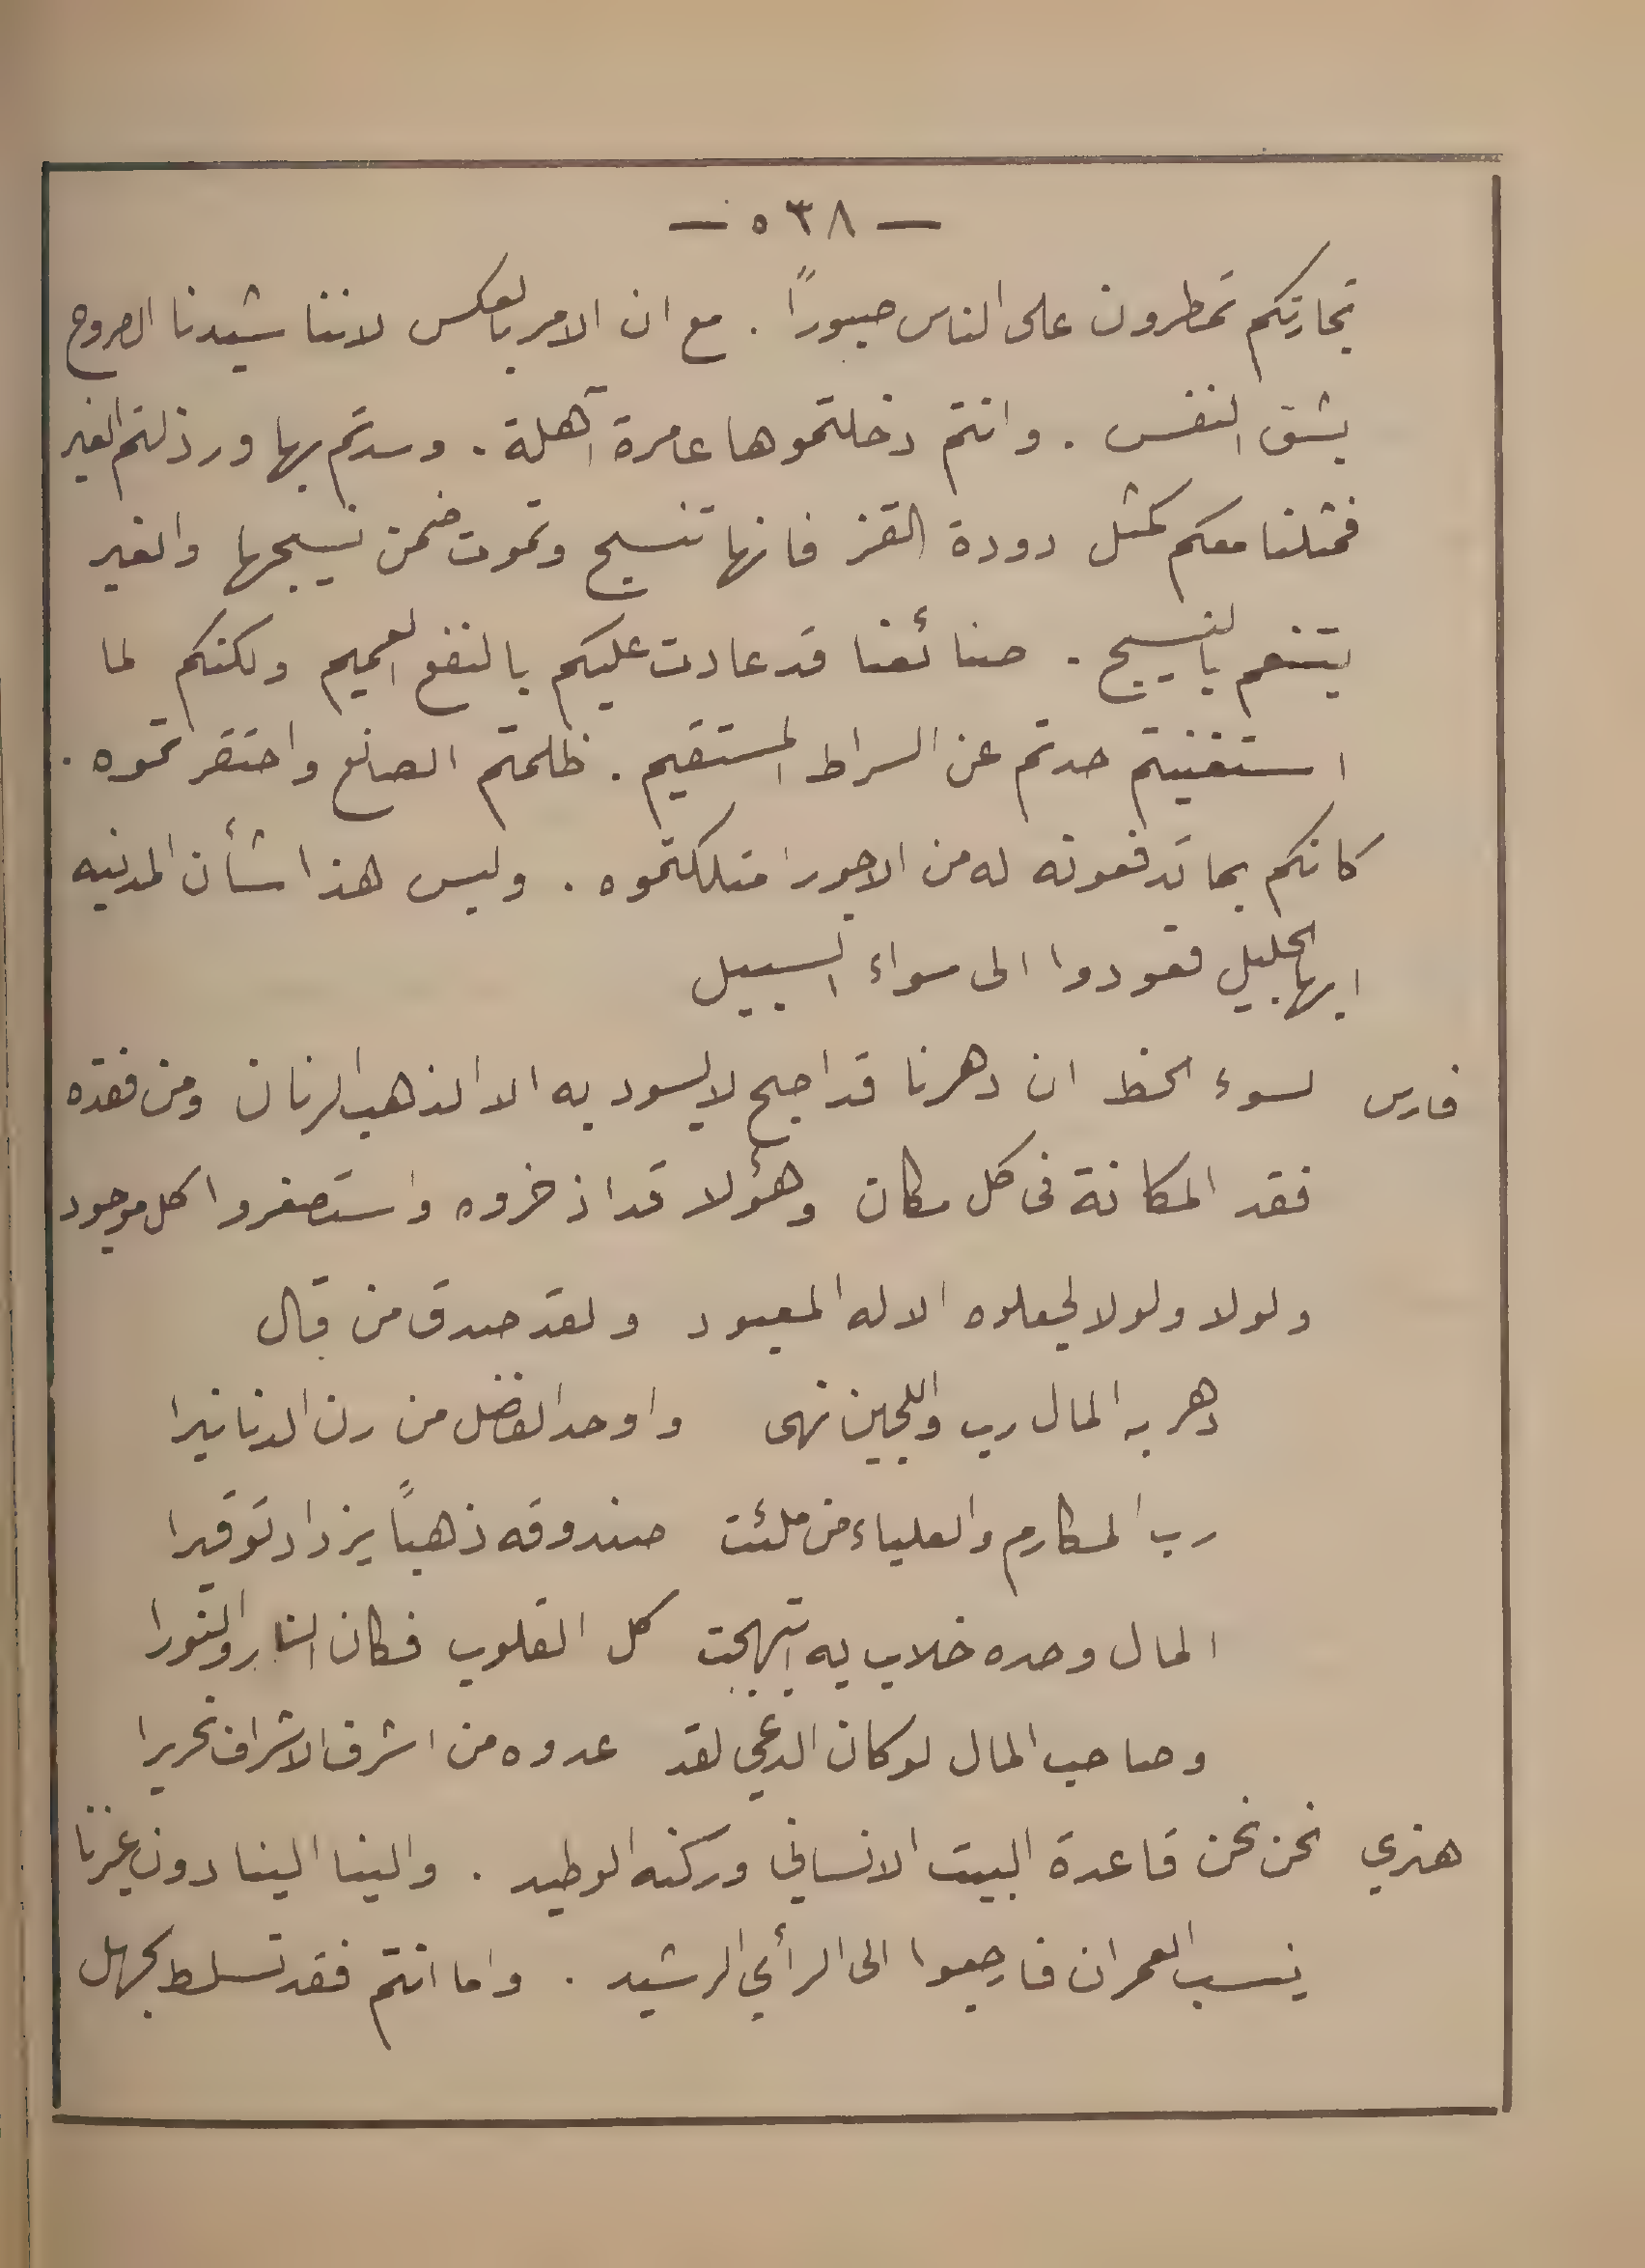 — ٥٣٨ —
تجارتكم تمطرون على الناس حبوراً . مع ان الامر بالعكس لاننا شيدنا الصروح
بشق النفس . وانتم دخلتموها عامرة آهلة . وسدتم بها ورذلتم الغير
فمثلنا معكم كمثل دودة القز فانها تنسج وتموت ضمن نسيجها والغير
يتنعم بالنسيج . صنائعنا قد عادت عليكم بالنفع العميم ولكنكم لما
استغنيتم حدتم عن السراط المستقيم . ظلمتم الصانع واحتقرتموه .
كانكم بما تدفعونه له من الاجور امتلكتموه . وليس هذا شأن المدنيه
ايها الجليل فعودوا الى سواء السبيل
فارس لسوء الحظ ان دهرنا قد اصبح لا يسود به الا الذهب الرنان ومن فقده
فقد المكانة في كل مكان وهؤلا قد اذخروه واستصغروا كل موجود
ولولا ولولا لجعلوه الاله المعبود ولقد صدق من قال
دهر به المال رب واللجين نهى واوحد الفضل من رن الدنانيرا
رب المكارم والعلياء من ملئت صندوقه ذهباً يزداد توقيرا
المال وحده خلاب به ابتهجت كل القلوب فكان النار والنورا
وصاحب المال لو كان الدعي لقد عدوه من اشرف الاشراف نحريرا
هنري نحن نحن قاعدة البيت الانساني وركنه الوطيد . والينا الينا دون غيرنا
ينسب العمران فارجعوا الى الرأي الرشيد . واما انتم فقد تسلط بجهل